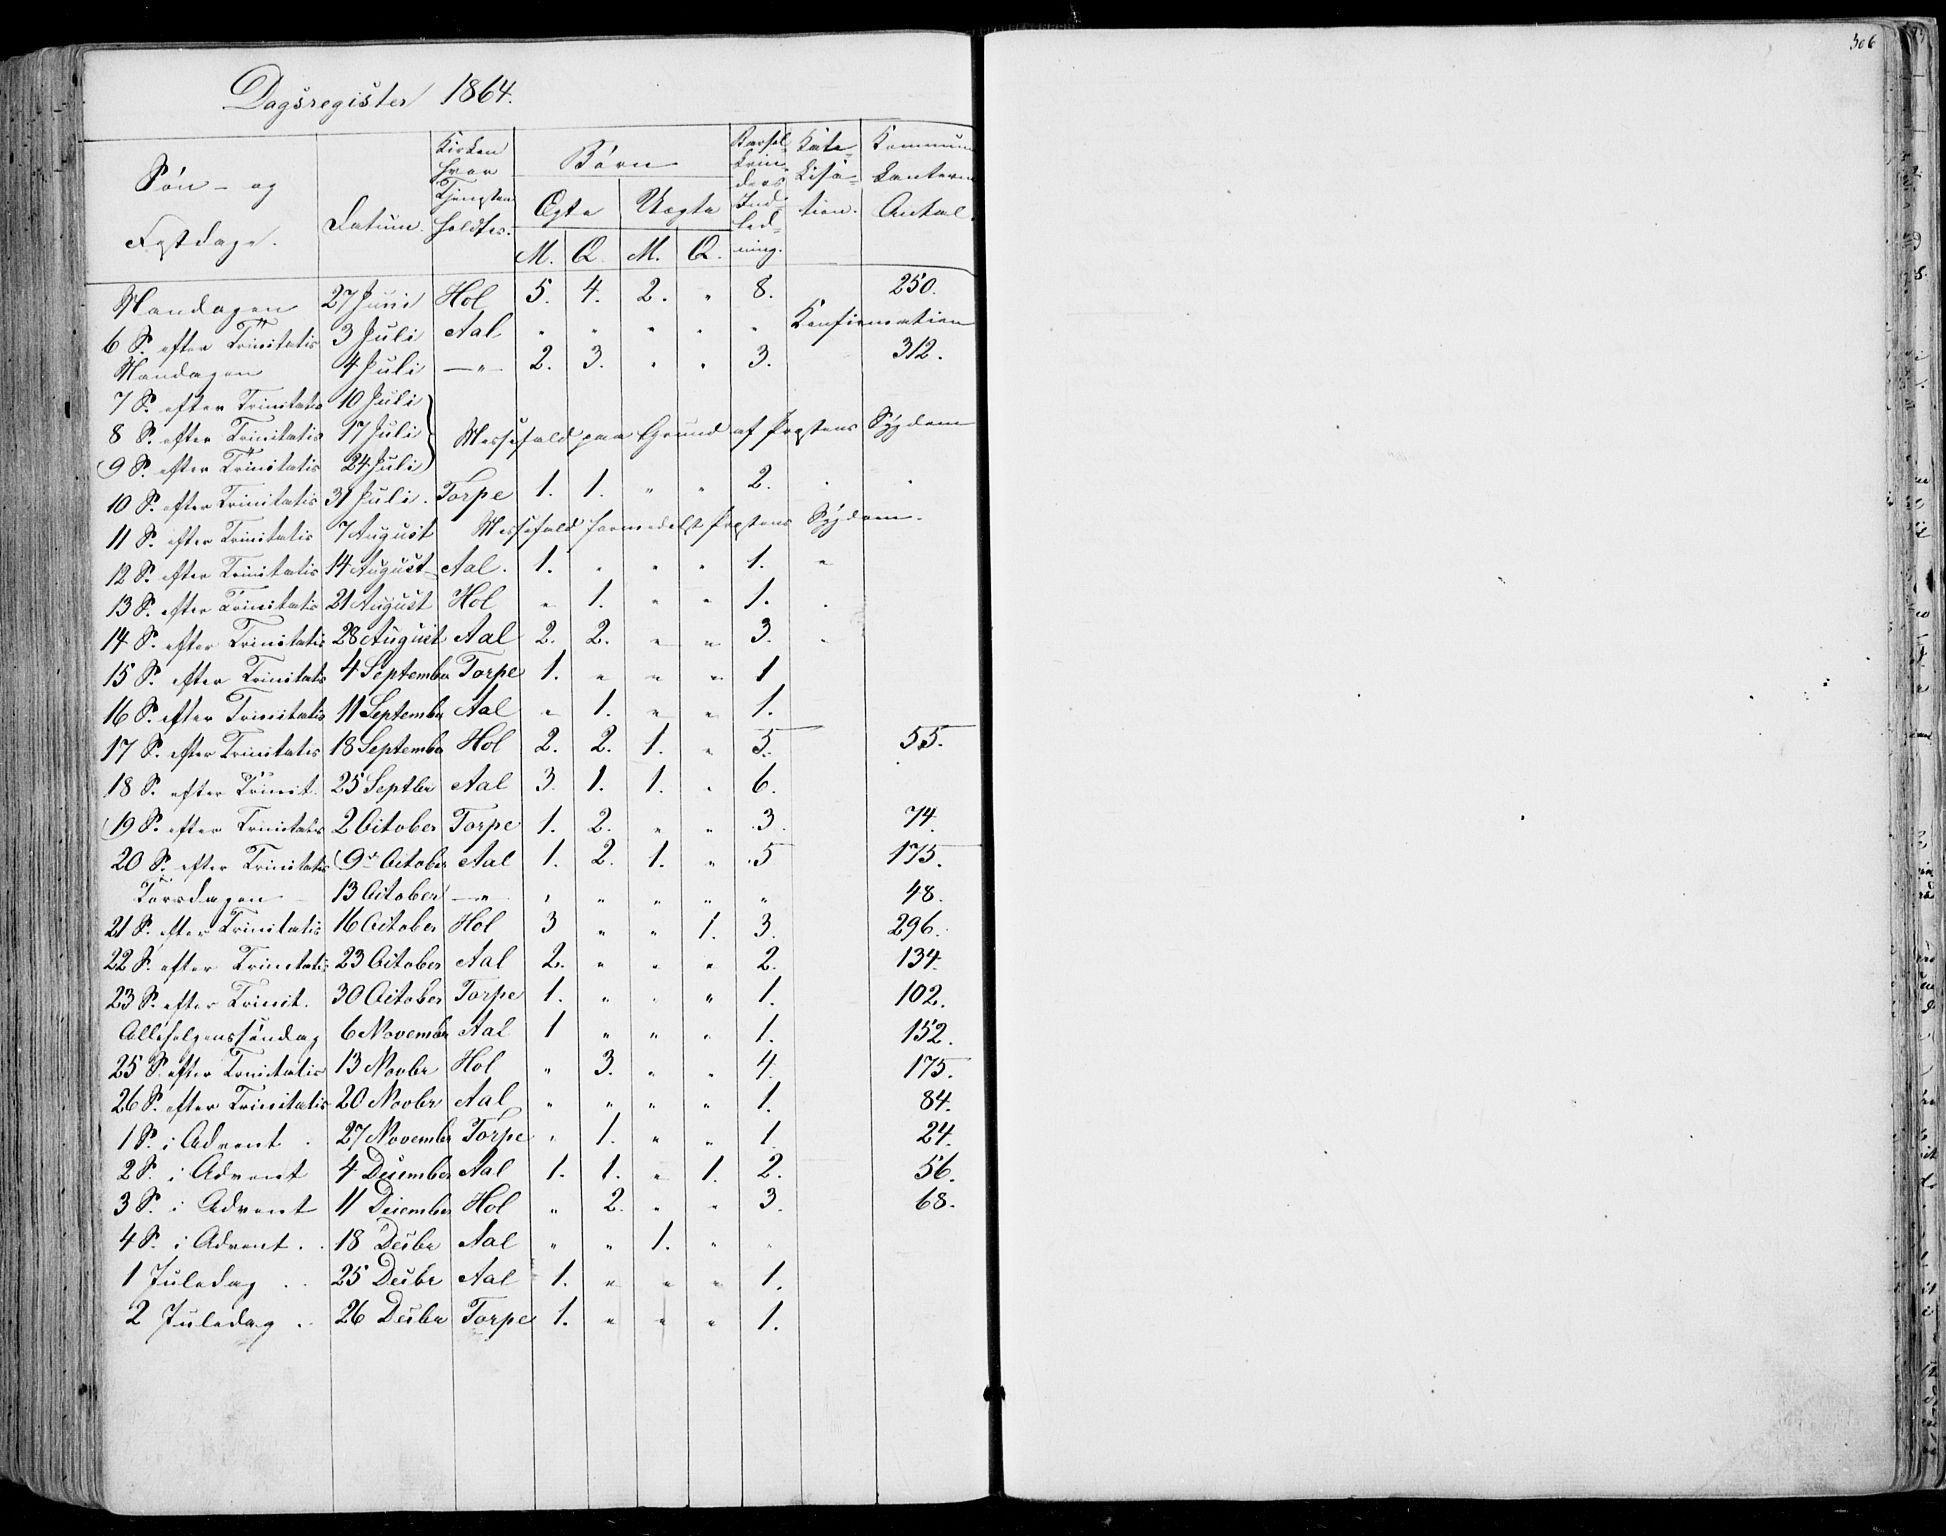 306
Dagsregister 1864.
Søn- og Festdage. | Datum. | Kirken hvor Tjenesten holdtes. | Børn | Barsel-kvin-ders Ind-led-ning. | Kate-kisa-tion. | Kommuni-kanternes Antal.
Ægte | Uægte
M. | Q. | M. | Q.
Mandagen | 27 Juni | Hol | 5. | 4. | 2. | " | 8. | | 250.
6 S. efter Trinitatis | 3 Juli | Aal | " | " | " | " | " | Konfirmation
Mandagen | 4 Juli | —"— | 2. | 3. | " | " | 3. | | 312.
7 S. efter Trinitatis | 10 Juli
8 S. efter Trinitatis | 17 Juli | Messefald paa Grund af Præstens Sygdom
9 S. efter Trinitatis | 24 Juli
10 S. efter Trinitatis | 31 Juli. | Torpe | 1. | 1. | " | " | 2. | . | .
11 S. efter Trinitatis | 7 August | Messefald formedelst Præstens Sygdom.
12 S. efter Trinitatis | 14 August | Aal. | 1. | " | " | " | 1. | "
13 S. efter Trinitatis | 21 August | Hol | " | 1. | " | " | 1. | .
14 S. efter Trinitatis | 28 August | Aal | 2. | 2. | " | " | 3. | "
15 S. efter Trinitatis | 4 September | Torpe | 1. | " | " | " | 1
16 S. efter Trinitatis | 11 September | Aal | " | 1. | " | " | 1.
17 S. efter Trinitatis | 18 September | Hol | 2. | 2. | 1. | " | 5. | | 55.
18 S. efter Trinit. | 25 Septbr | Aal | 3. | 1. | 1. | " | 6.
19 S. efter Trinitatis | 2 October | Torpe | 1. | 2. | " | " | 3. | | 74.
20 S. efter Trinitatis | 9de October | Aal | 1. | 2. | 1. | " | 5 | | 175.
Torsdagen | 13 October | —"— | " | " | " | " | " | | 48.
21 S. efter Trinitatis | 16 October | Hol | 3 | " | " | 1. | 3. | | 296.
22 S. efter Trinitatis | 23 October | Aal | 2. | " | " | " | 2. | | 134.
23 S. efter Trinit. | 30 October | Torpe | 1. | " | " | " | 1. | | 102.
Allehelgenssøndag | 6 November | Aal | 1 | " | " | " | 1. | | 152.
25 S. efter Trinitatis | 13 Novbr | Hol | " | 3. | " | " | 4. | | 175.
26 S. efter Trinitatis | 20 Novbr | Aal | " | " | " | " | 1. | | 84.
1 S. i Advent . | 27 November | Torpe | " | 1. | " | " | 1. | | 24.
2 S. i Advent | 4 December | Aal | 1. | 1. | " | 1. | 2. | | 56.
3 S. i Advent | 11 December | Hol | " | 2. | " | " | 3. | | 68.
4 S. i Advent . . | 18 Decbr | Aal | " | " | 1. | " | "
1 Juledag . . | 25 Decbr | Aal | 1. | " | " | " | 1.
2 Juledag . . | 26 Decbr | Torpe | 1. | " | " | " | 1.